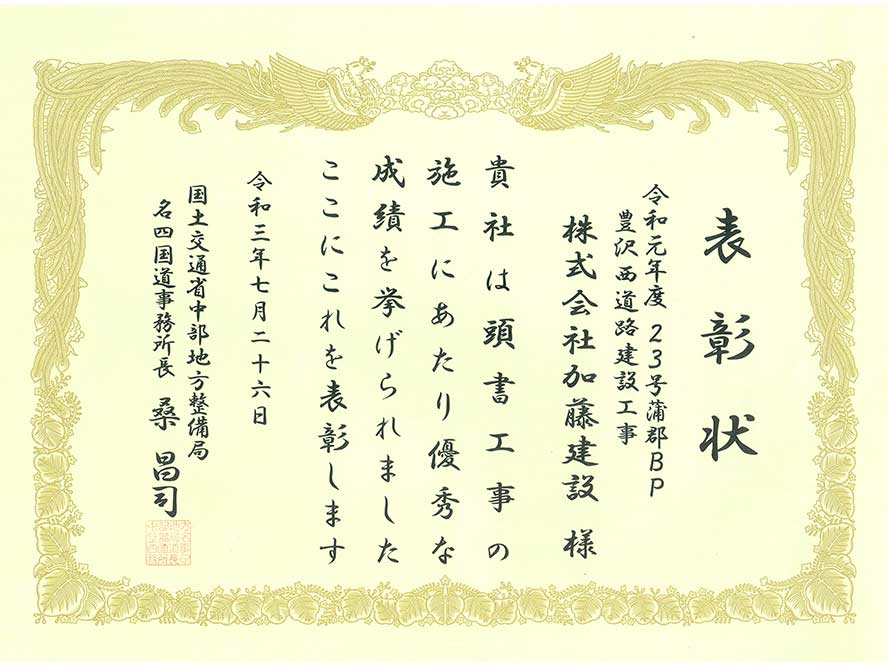 表彰状
令和元年度 23号蒲郡BP
豊沢西道路建設工事
株式会社加藤建設 様
貴社は頭書工事の
施工にあたり優秀な
成績を挙げられました
ここにこれを表彰します
令和三年七月二十六日
国土交通省中部地方整備局
名四国道事務所長 桑 昌司